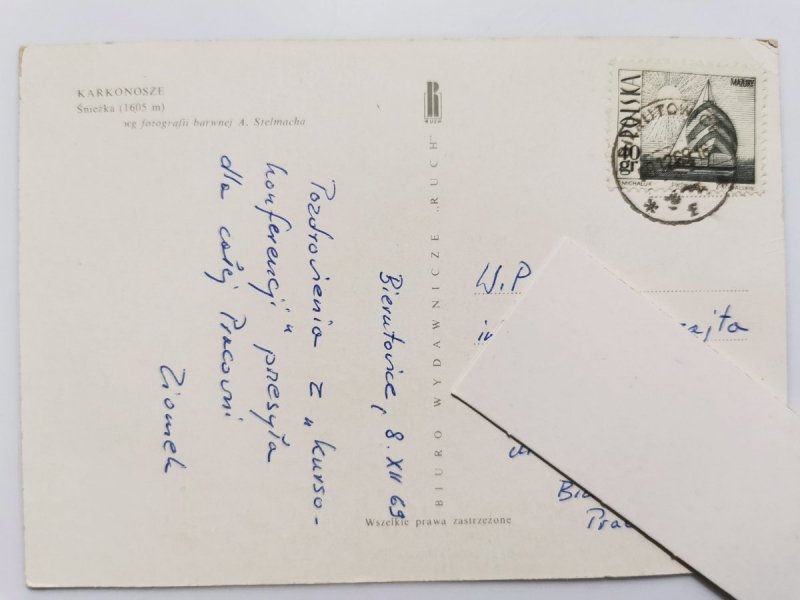 KARKONOSZE
Śnieżka (1605 m)
wg fotografii barwnej A. Stelmacha
RUCH
BIURO WYDAWNICZE „RUCH"
Wszelkie prawa zastrzeżone
Bierutowice, 8. XII 69
Pozdrowienia z „kurso-
konferencji" przesyła
dla całej Pracowni
Ziomek
POLSKA
40 gr
W.P